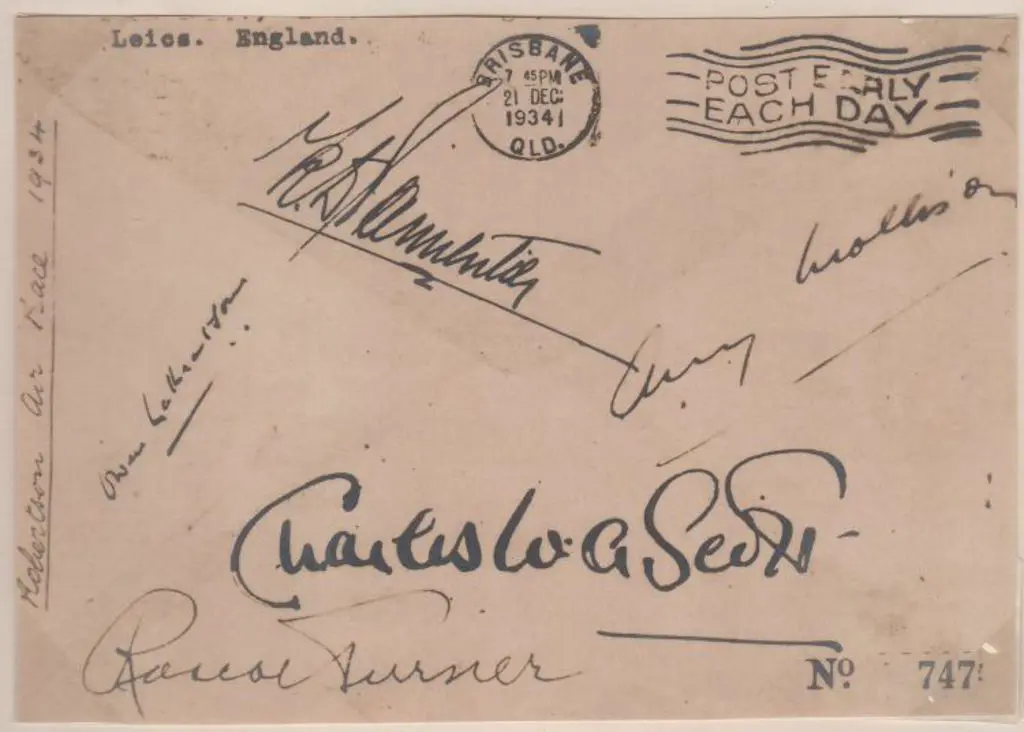 Leics. England.
BRISBANE
7 45PM
21 DEC
1934
QLD.
POST EARLY
EACH DAY
Robertson Air Race 1934
Amy Mollison
Owen Cathcart Jones
Charles W. A. Scott
Roscoe Turner
No. 747